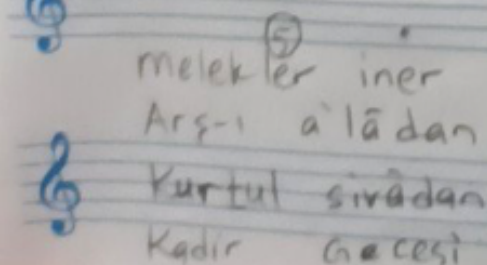 5
melekler iner
Arş-ı a'lādan
Kurtul sırādan
Kadir Gecesi